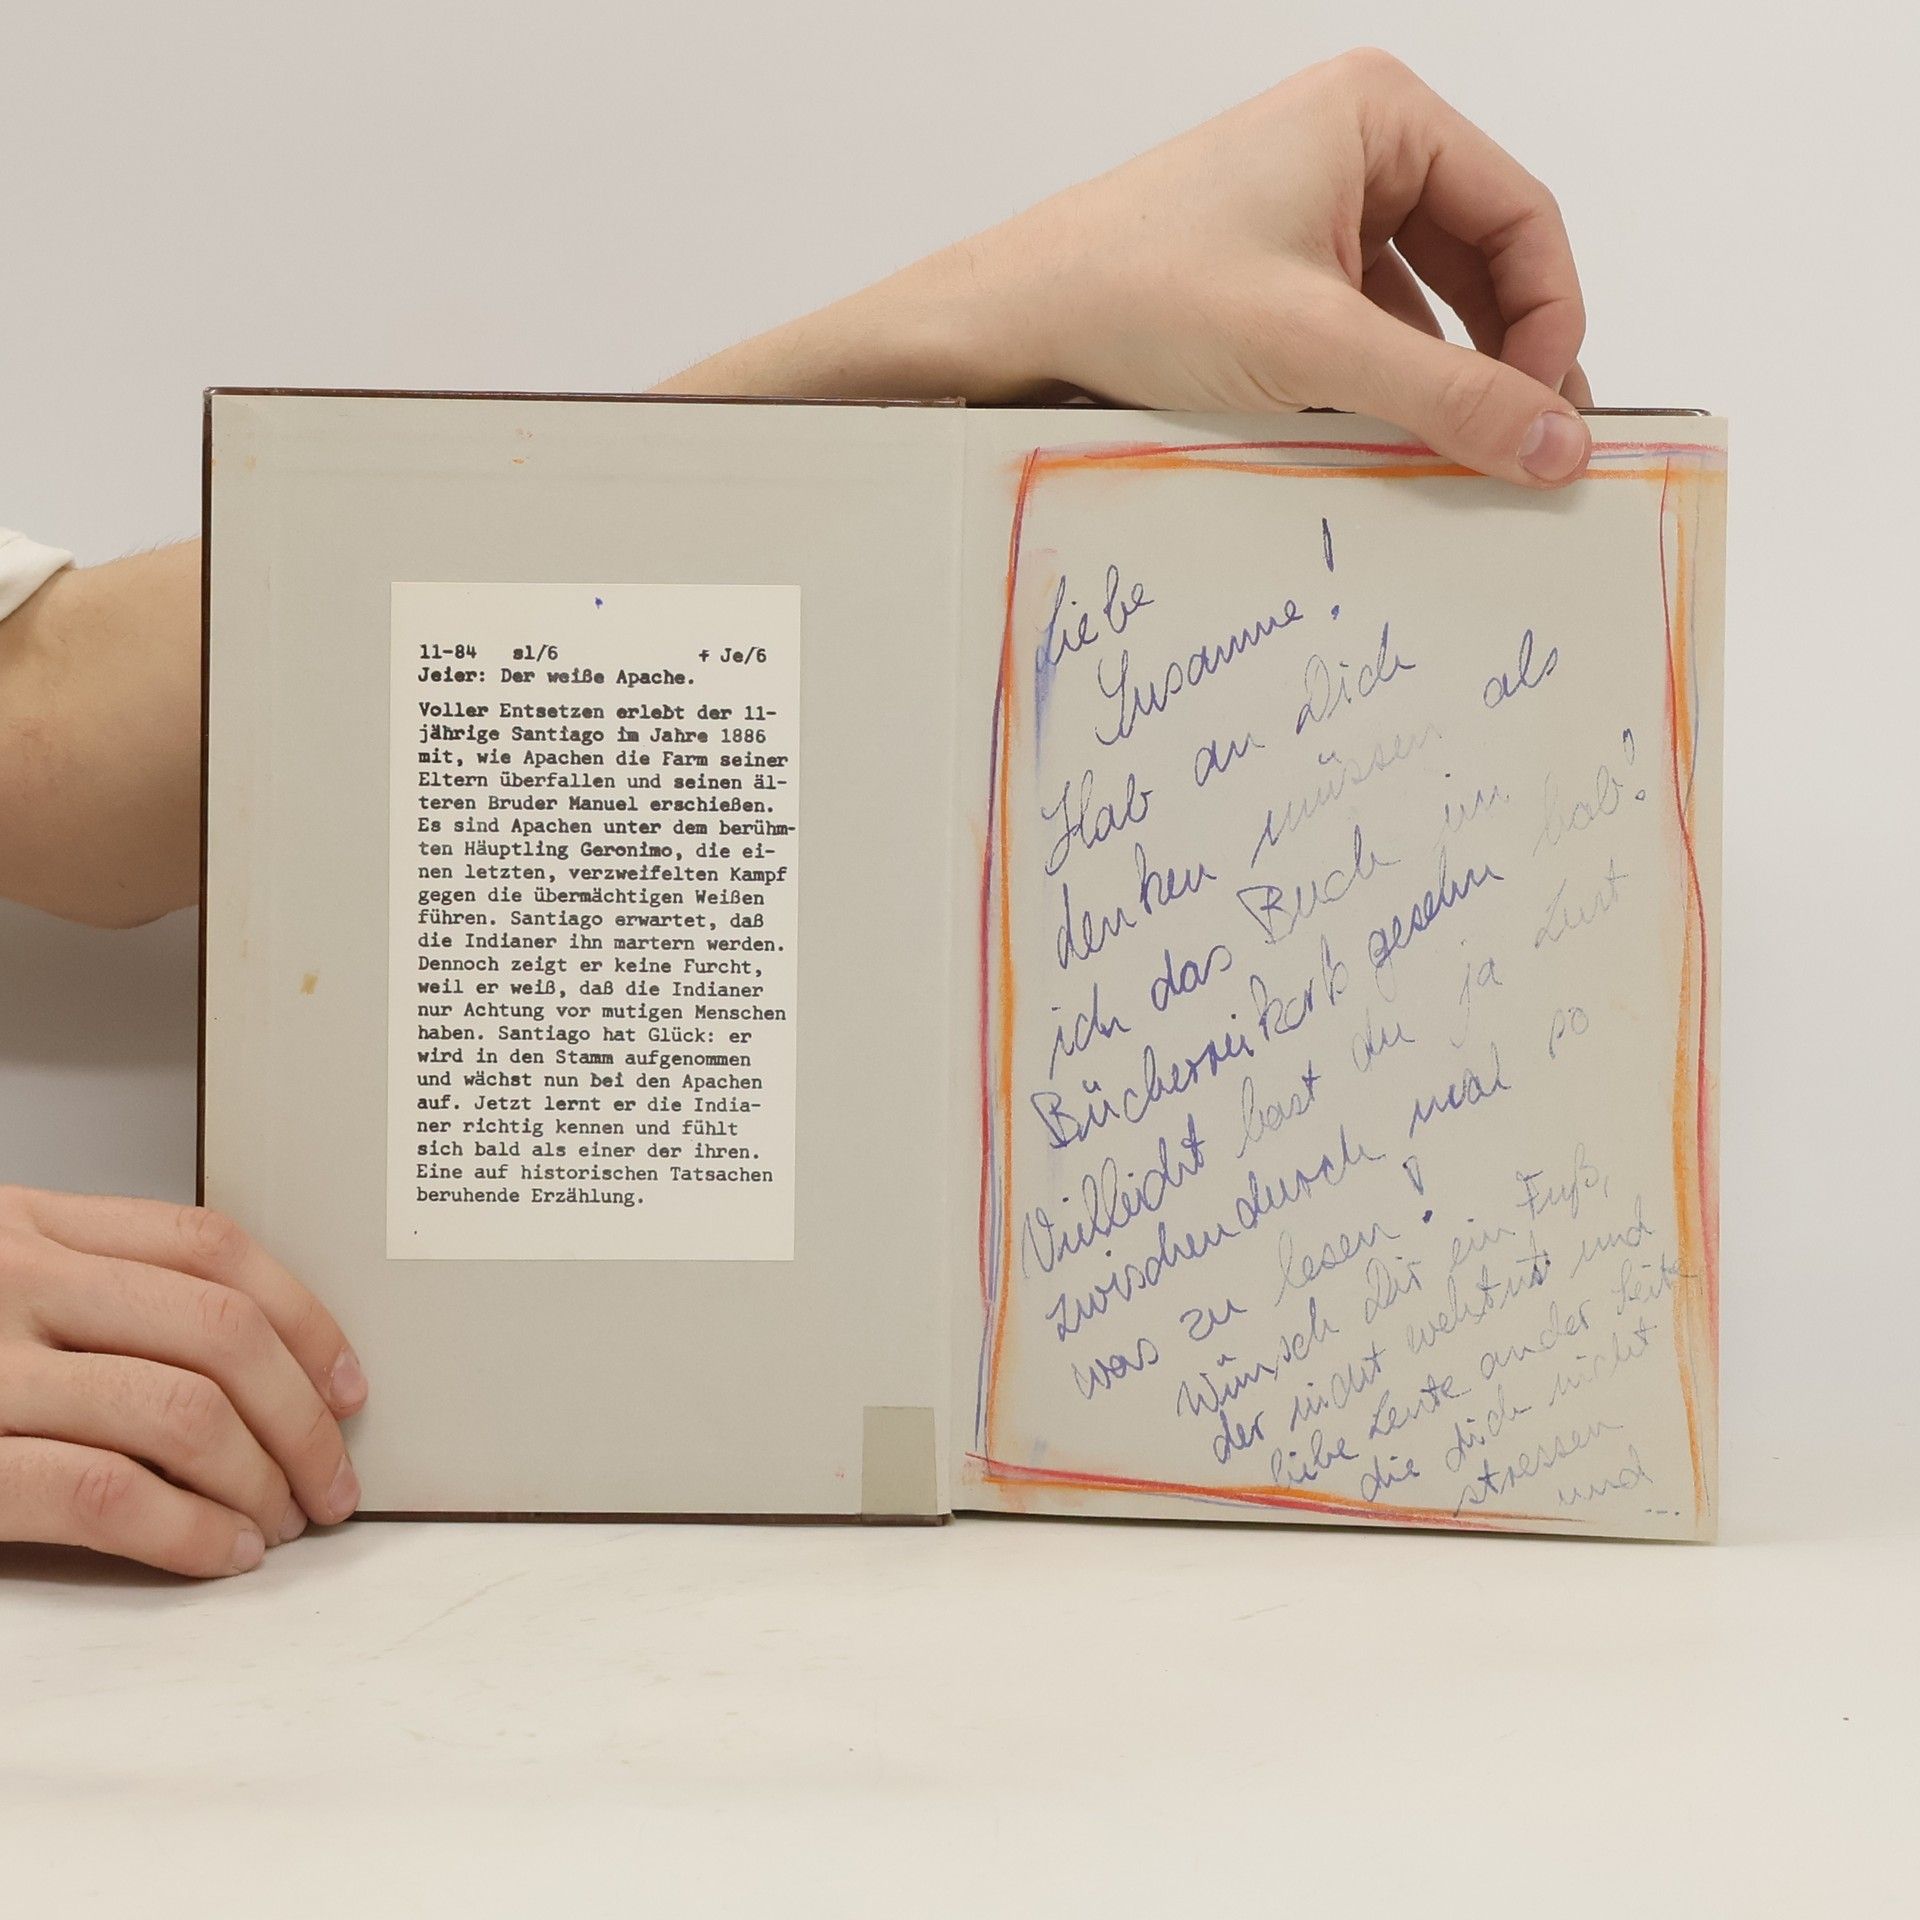 11-84 sl/6 + Je/6
Jeier: Der weiße Apache.
Voller Entsetzen erlebt der 11-
jährige Santiago im Jahre 1886
mit, wie Apachen die Farm seiner
Eltern überfallen und seinen äl-
teren Bruder Manuel erschießen.
Es sind Apachen unter dem berühm-
ten Häuptling Geronimo, die ei-
nen letzten, verzweifelten Kampf
gegen die übermächtigen Weißen
führen. Santiago erwartet, daß
die Indianer ihn martern werden.
Dennoch zeigt er keine Furcht,
weil er weiß, daß die Indianer
nur Achtung vor mutigen Menschen
haben. Santiago hat Glück: er
wird in den Stamm aufgenommen
und wächst nun bei den Apachen
auf. Jetzt lernt er die India-
ner richtig kennen und fühlt
sich bald als einer der ihren.
Eine auf historischen Tatsachen
beruhende Erzählung.
Liebe
Susanne!
Hab an Dich
denken müssen als
ich das Buch im
Büchereikorb gesehn hab!
Vielleicht hast du ja Lust
zwischendurch mal so
was zu lesen!
Wünsch Dir ein Fuß,
der nicht wehtut und
liebe Leute an der Seite
die dich nicht
stressen
und ...